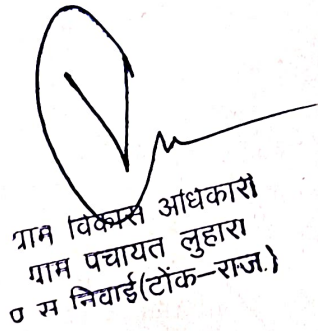 ग्राम विकास अधिकारी
ग्राम पंचायत लुहारा
प स निवाई(टोंक-राज.)